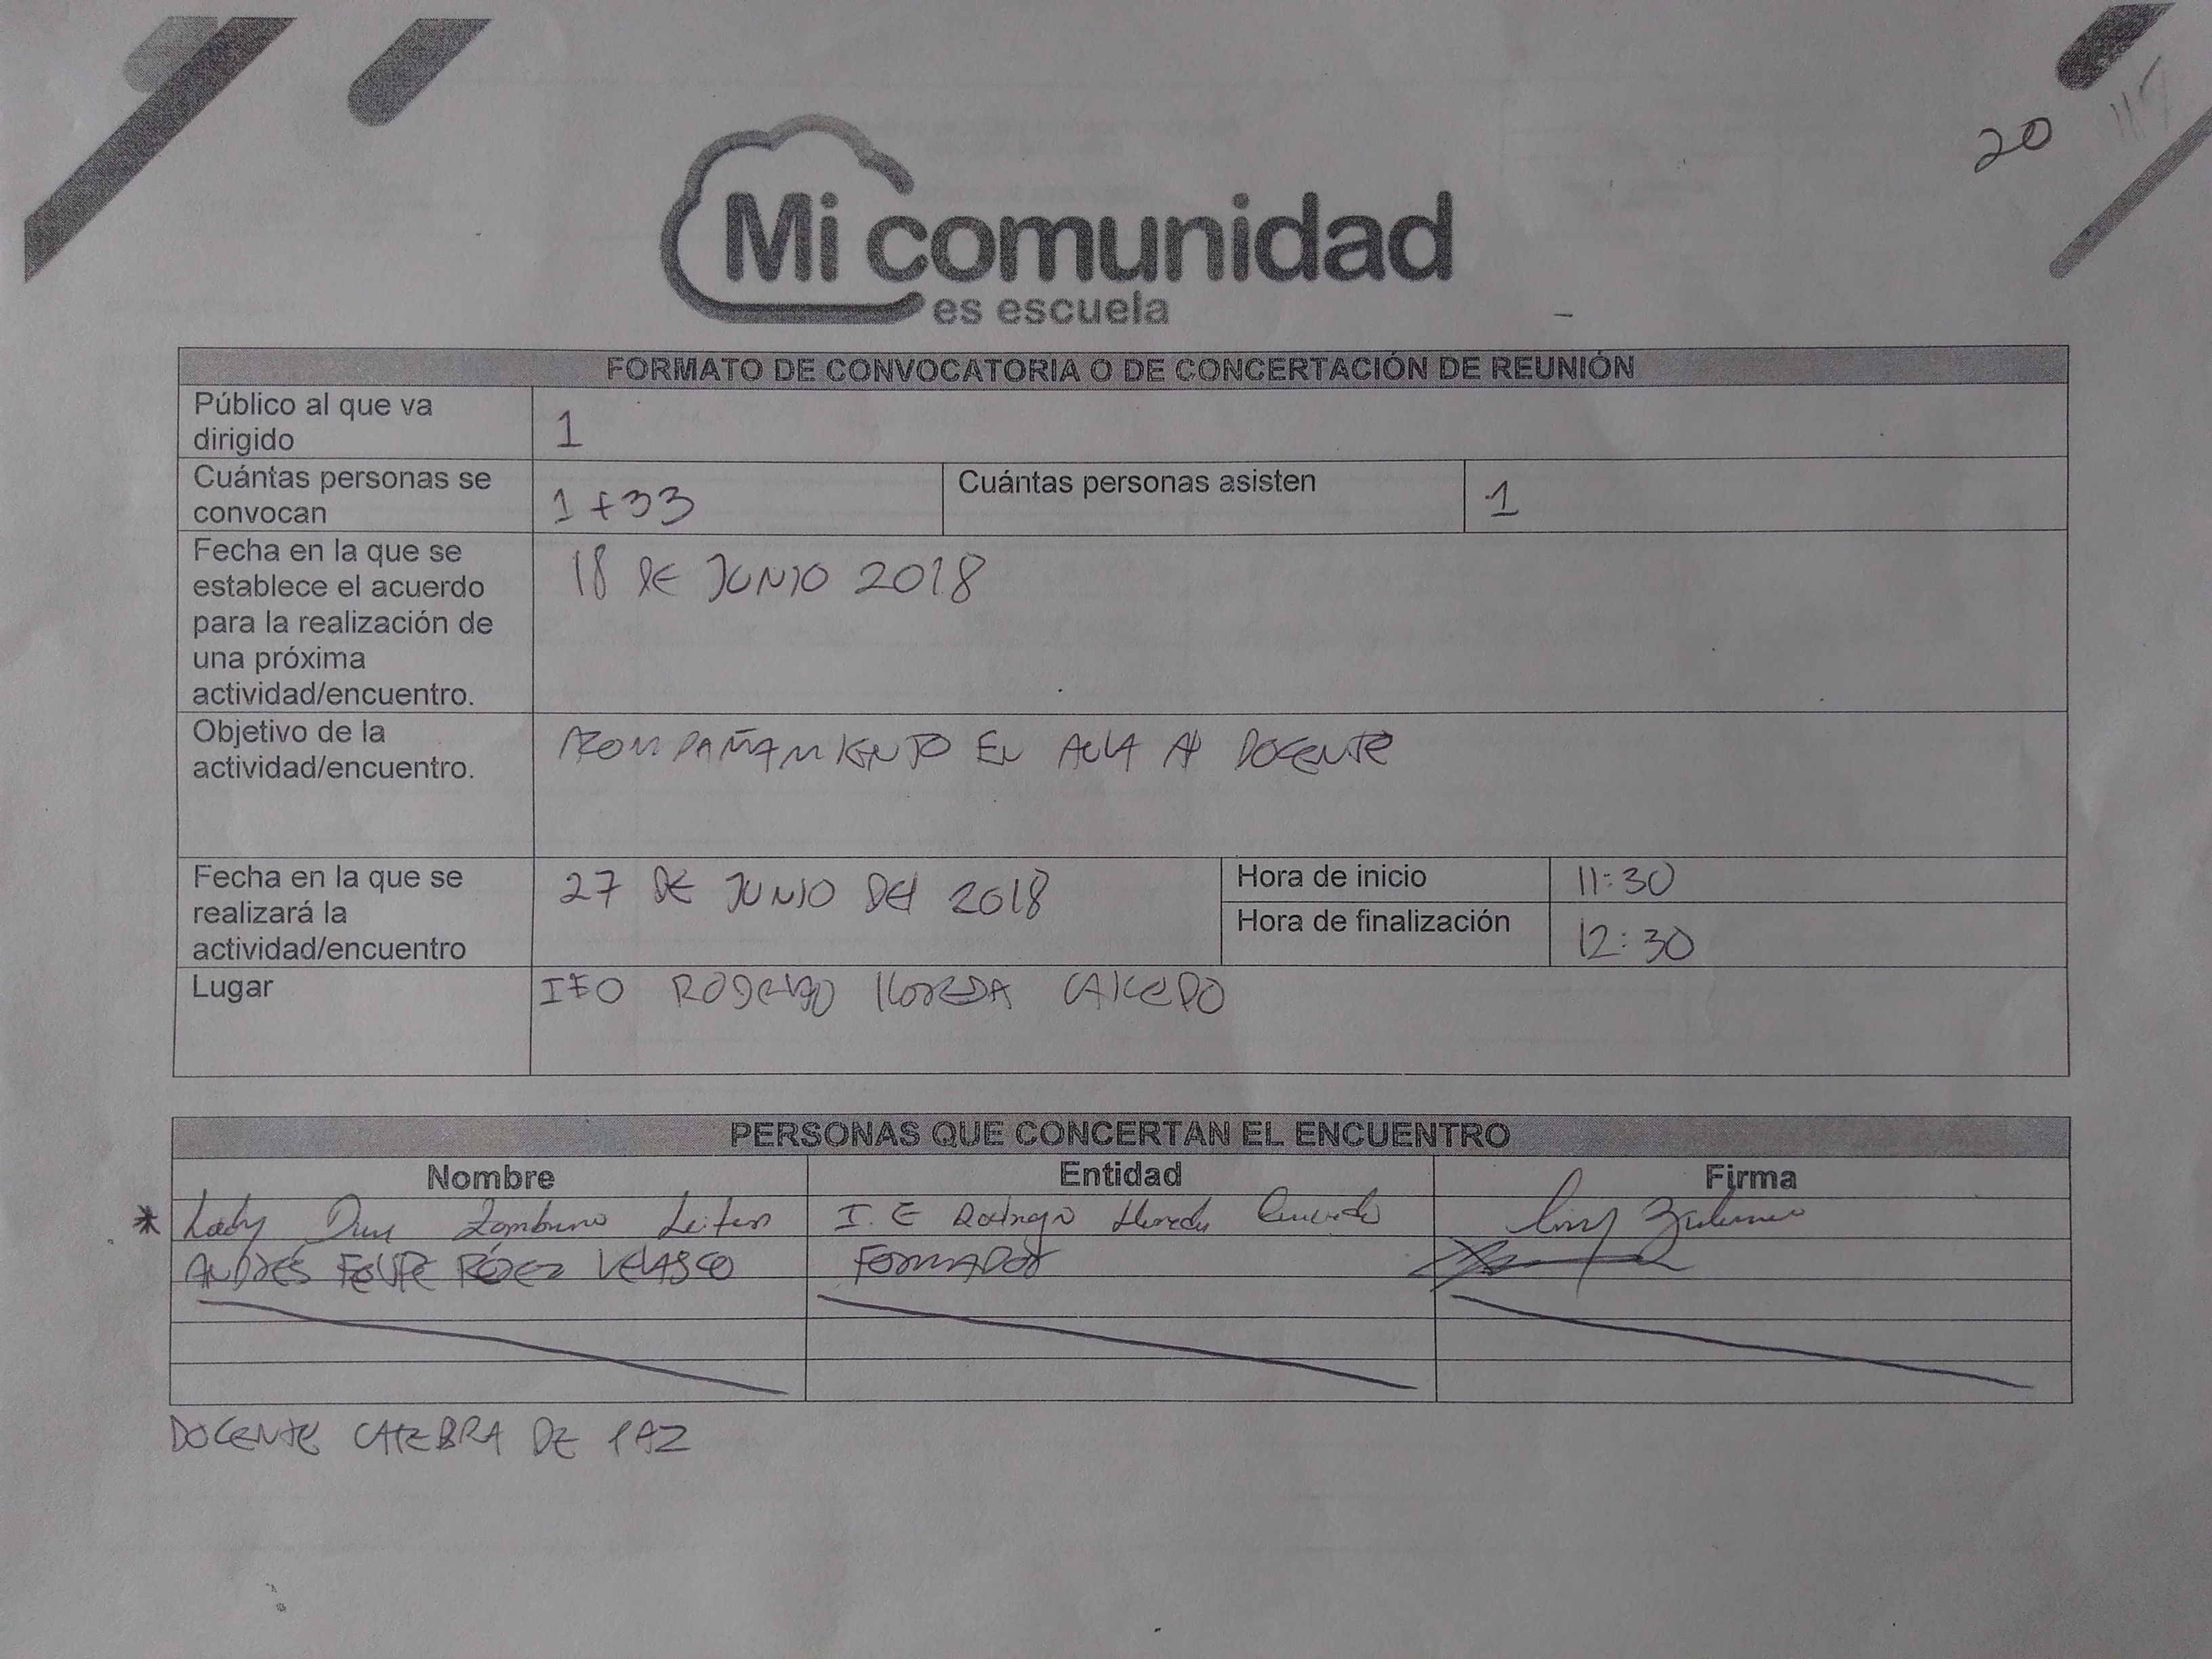 20
Mi comunidad
es escuela
FORMATO DE CONVOCATORIA O DE CONCERTACIÓN DE REUNIÓN
Público al que va
dirigido
1
Cuántas personas se
convocan
1 + 33
Cuántas personas asisten
1
Fecha en la que se
establece el acuerdo
para la realización de
una próxima
actividad/encuentro.
18 DE JUNIO 2018
Objetivo de la
actividad/encuentro.
ACOMPAÑAMIENTO EN AULA Al DOCENTE
Fecha en la que se
realizará la
actividad/encuentro
27 DE JUNIO DEl 2018
Hora de inicio
11:30
Hora de finalización
12:30
Lugar
IEO RODRIGO lloREDA CAICEDO
PERSONAS QUE CONCERTAN EL ENCUENTRO
Nombre
Entidad
Firma
* Lady Zambrano I. E Rodrigo Lloreda
ANDRÉS FELIPE PÉREZ VELASCO FORMADOR
DOCENTE CATEDRA DE PAZ